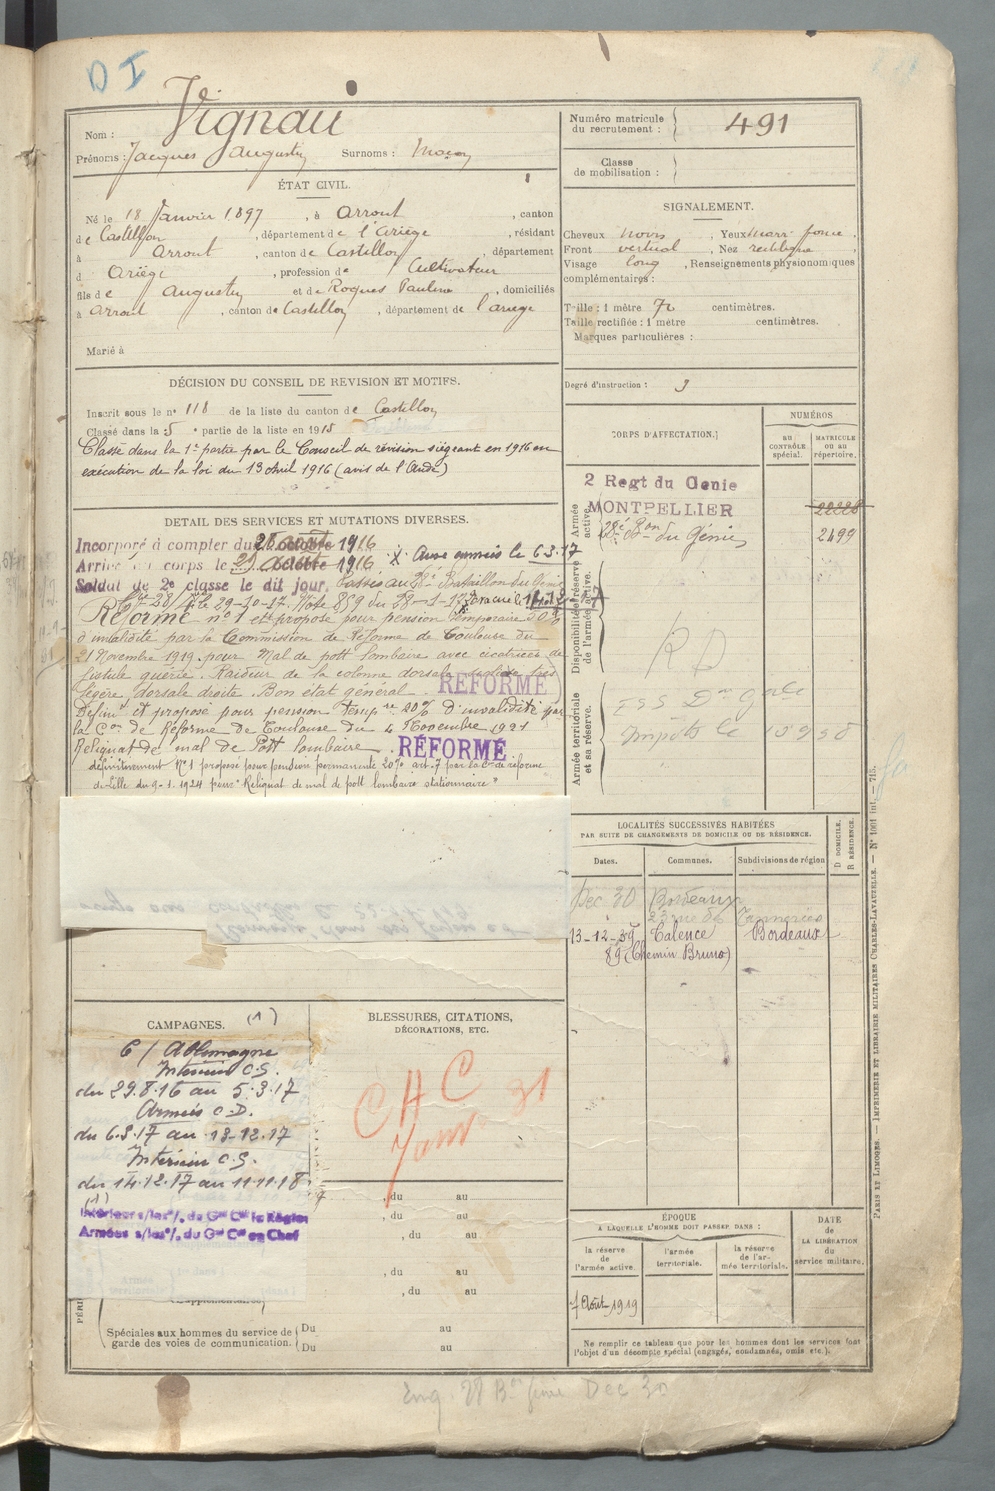 D I
Nom : Vignau
Prénoms : Jacques Augustin Surnoms :
Numéro matricule
du recrutement : 491
Classe
de mobilisation :
ÉTAT CIVIL.
Né le 18 Janvier 1897, à Arrout, canton
de Castillon, département de l'Ariège, résidant
à Arrout, canton de Castillon, département
d Ariège, profession de Cultivateur
fils de Augustin et de Roques Pauline, domiciliés
à Arrout, canton de Castillon, département de l'ariège
Marié à
SIGNALEMENT.
Cheveux noirs, Yeux marr. foncé,
Front vertical, Nez rectiligne
Visage long, Renseignements physionomiques
complémentaires :
Taille : 1 mètre 72 centimètres.
Taille rectifiée : 1 mètre centimètres.
Marques particulières :
Degré d'instruction : 3
DÉCISION DU CONSEIL DE REVISION ET MOTIFS.
Inscrit sous le n° 118 de la liste du canton de Castillon
Classé dans la 5 e partie de la liste en 1915
Classé dans la 1re partie par le Conseil de révision siégeant en 1916 en
exécution de la loi du 13 Avril 1916 (avis de l'Aude)
CORPS D'AFFECTATION.
NUMÉROS
AU CONTRÔLE spécial.
MATRICULE OU AU répertoire.
Armée active.
2 Regt du Genie
MONTPELLIER
28e Bon du Génie 2499
Disponibilité et réserve de l'armée active.
R D
Armée territoriale et sa réserve.
DETAIL DES SERVICES ET MUTATIONS DIVERSES.
Incorporé à compter du 28 1916
Arrivé au corps le 29 octobre 1916 X Aux armées le 6.3.17
Soldat de 2e classe le dit jour. Passé au 28e Bataillon du Génie
le 29-10-17. Note 859 du 28-1-17 Evacué le
Réformé n° 1 et proposé pour pension temporaire 30%
d'invalidité par la Commission de Réforme de Toulouse du
21 Novembre 1919. pour Mal de pott lombaire avec cicatrices de
fistule guérie. Raideur de la colonne dorsale très
légère, dorsale droite. Bon état général. RÉFORMÉ
Définit et proposé pour pension temp re 20% d'invalidité par
la Con de Réforme de Toulouse du 4 Novembre 1921
Reliquat de mal de Pott lombaire. RÉFORMÉ
définitivement N°1 proposé pour pension permanente 20% art. 7 par la Con de réforme
de Lille du 9-1-1924 pour "Reliquat de mal de pott lombaire stationnaire"
LOCALITÉS SUCCESSIVES HABITÉES
PAR SUITE DE CHANGEMENTS DE DOMICILE OU DE RÉSIDENCE.
Dates. Communes. Subdivisions de région D DOMICILE. R RÉSIDENCE.
Dec 30 Bordeaux
13-12-39 Talence Bordeaux
89 (Chemin Bruno)
CAMPAGNES. (1)
C/ Allemagne
Intérieur C.S.
du 29.8.16 au 5.3.17
Armées C.D.
du 6.3.17 au 13-12.17
Intérieur C.S.
du 14.12.17 au 11.11.18
(1)
Intérieur s/les o/. du Gal Ct la Région
Armées s/les o/. du Gal Ct en Chef
BLESSURES, CITATIONS,
DÉCORATIONS, ETC.
CHC
Janv 31
, du au
, du au
, du au
, du au
, du au
Spéciales aux hommes du service de
garde des voies de communication.
Du au
Du au
ÉPOQUE
A LAQUELLE L'HOMME DOIT PASSER DANS :
la réserve de l'armée active.
l'armée territoriale.
la réserve de l'armée territoriale.
DATE DE LA LIBÉRATION du service militaire.
7 Août 1919
Ne remplir ce tableau que pour les hommes dont les services font
l'objet d'un décompte spécial (engagés, condamnés, omis etc.).
PARIS ET LIMOGES. — IMPRIMERIE ET LIBRAIRIE MILITAIRES CHARLES-LAVAUZELLE. — N° 1001 int. — 715.
Eng. 28 Bon Génie Dec 30